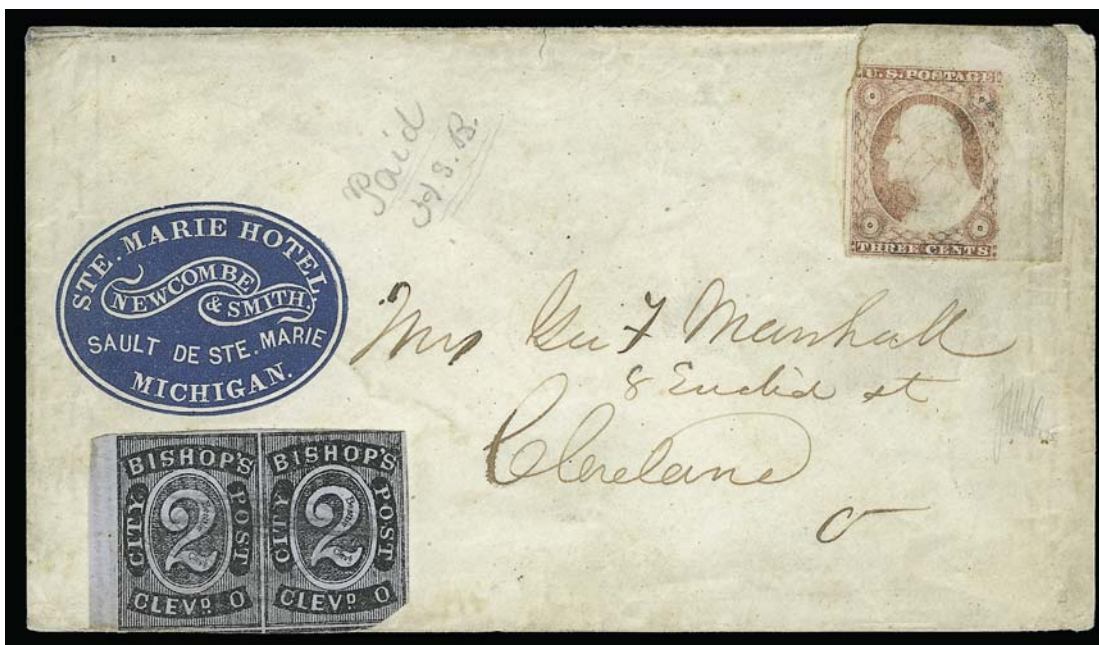 U.S. POSTAGE
THREE CENTS
Paid
S. B.
STE. MARIE HOTEL
NEWCOMBE
& SMITH,
SAULT DE STE. MARIE
MICHIGAN.
Mrs Geo F Marshall
8 Euclid st
Cleveland
O
BISHOP'S BISHOP'S
CITY 2 POST CITY 2 POST
CLEVD. O CLEVD. O